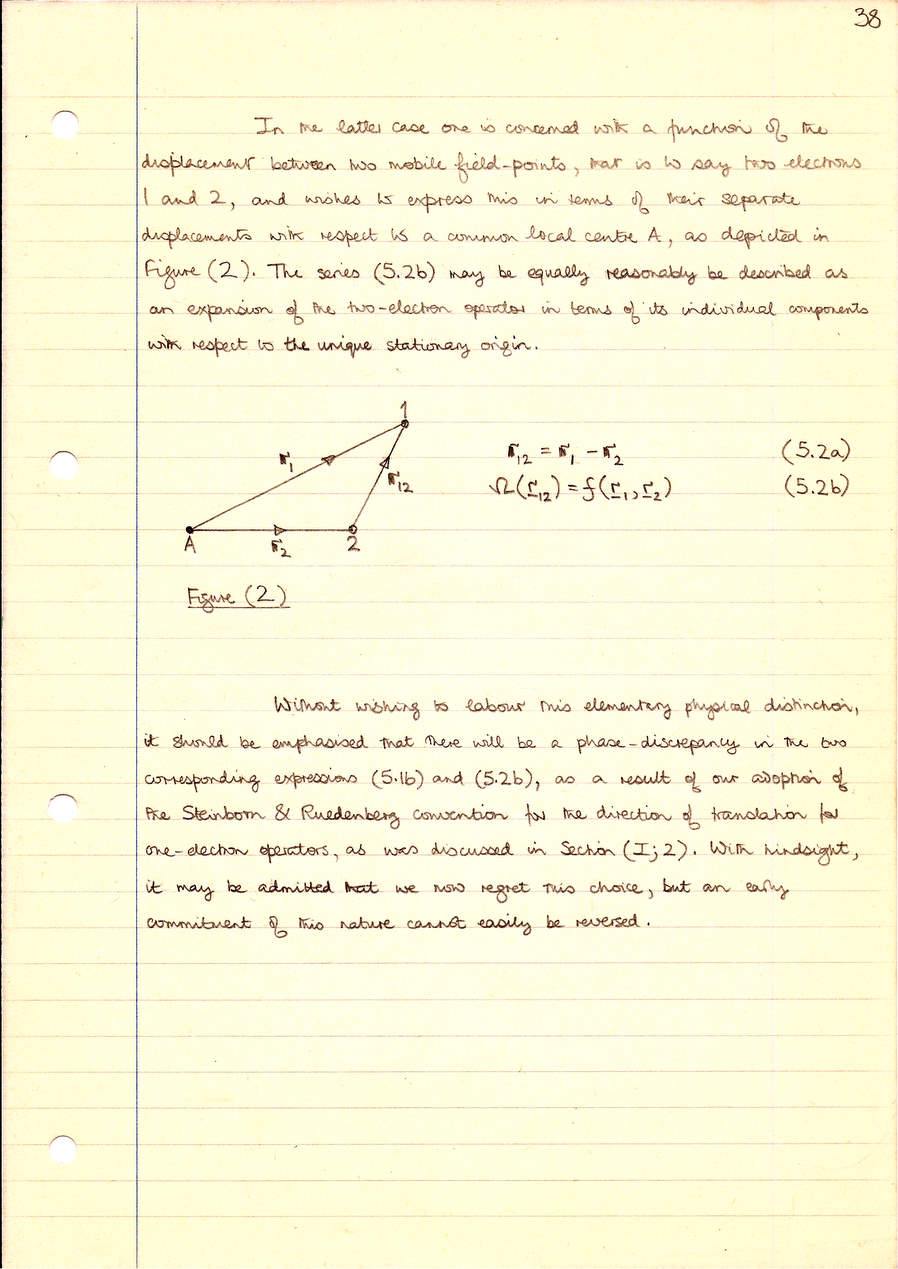 38
In the latter case one is concerned with a function of the
displacement between two mobile field-points, that is to say two electrons
1 and 2, and wishes to express this in terms of their separate
displacements with respect to a common local centre A, as depicted in
Figure (2). The series (5.2b) may be equally reasonably be described as
an expansion of the two-electron operator in terms of its individual components
with respect to the unique stationary origin.
1
r₁
r₁₂
A
r₂
2
r₁₂ = r₁ - r₂ (5.2a)
Ω(r₁₂) = f(r₁, r₂) (5.2b)
Figure (2)
Without wishing to labour this elementary physical distinction,
it should be emphasised that there will be a phase-discrepancy in the two
corresponding expressions (5.1b) and (5.2b), as a result of our adoption of
the Steinborn & Ruedenberg convention for the direction of translation for
one-electron operators, as was discussed in Section (I;2). With hindsight,
it may be admitted that we now regret this choice, but an early
commitment of this nature cannot easily be reversed.